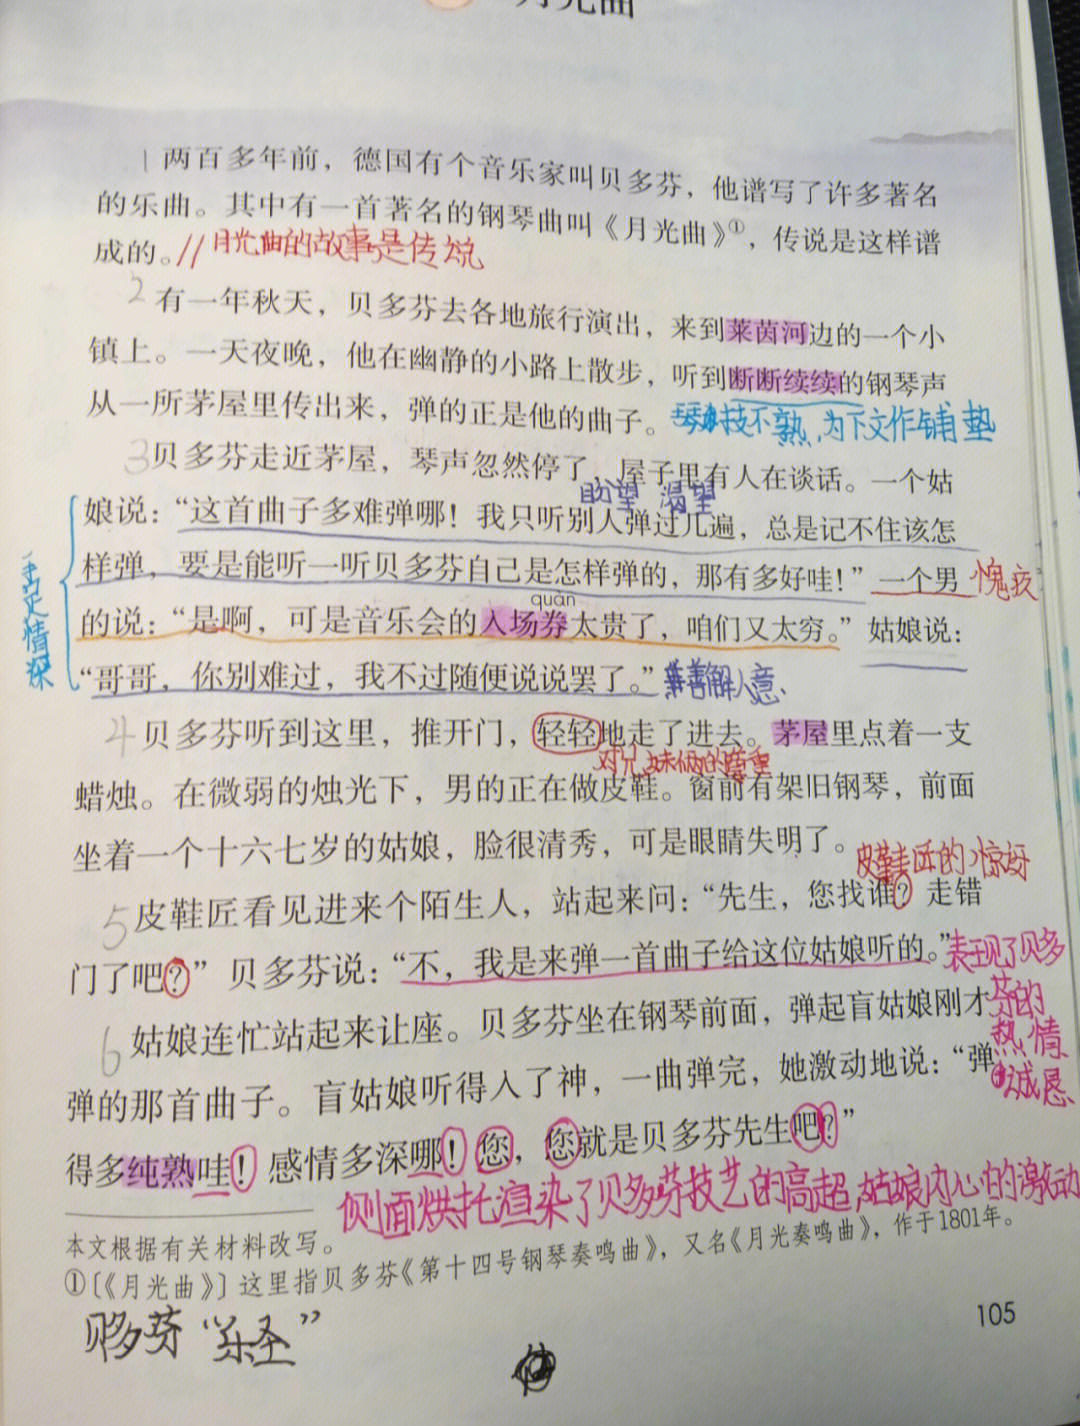 月光曲
1 两百多年前，德国有个音乐家叫贝多芬，他谱写了许多著名
的乐曲。其中有一首著名的钢琴曲叫《月光曲》①，传说是这样谱
成的。// 月光曲的故事是传说
2 有一年秋天，贝多芬去各地旅行演出，来到莱茵河边的一个小
镇上。一天夜晚，他在幽静的小路上散步，听到断断续续的钢琴声
从一所茅屋里传出来，弹的正是他的曲子。 琴技不熟，为下文作铺垫
3 贝多芬走近茅屋，琴声忽然停了，屋子里有人在谈话。一个姑
盼望 渴望
娘说：“这首曲子多难弹哪！我只听别人弹过几遍，总是记不住该怎
样弹，要是能听一听贝多芬自己是怎样弹的，那有多好哇！”一个男 愧疚
quàn
的说：“是啊，可是音乐会的入场券太贵了，咱们又太穷。”姑娘说：
“哥哥，你别难过，我不过随便说说罢了。” 善解人意、
手足情深
4 贝多芬听到这里，推开门，轻轻地走了进去。茅屋里点着一支
对兄妹俩的尊重
蜡烛。在微弱的烛光下，男的正在做皮鞋。窗前有架旧钢琴，前面
坐着一个十六七岁的姑娘，脸很清秀，可是眼睛失明了。
皮鞋匠的惊讶
5 皮鞋匠看见进来个陌生人，站起来问：“先生，您找谁？走错
门了吧？”贝多芬说：“不，我是来弹一首曲子给这位姑娘听的。” 表现了贝多
芬的
热情
诚恳
6 姑娘连忙站起来让座。贝多芬坐在钢琴前面，弹起盲姑娘刚才
弹的那首曲子。盲姑娘听得入了神，一曲弹完，她激动地说：“弹
得多纯熟哇！感情多深哪！您，您就是贝多芬先生吧？”
侧面烘托渲染了贝多芬技艺的高超，姑娘内心的激动
本文根据有关材料改写。
①〔《月光曲》〕这里指贝多芬《第十四号钢琴奏鸣曲》，又名《月光奏鸣曲》，作于1801年。
贝多芬“乐圣”
105